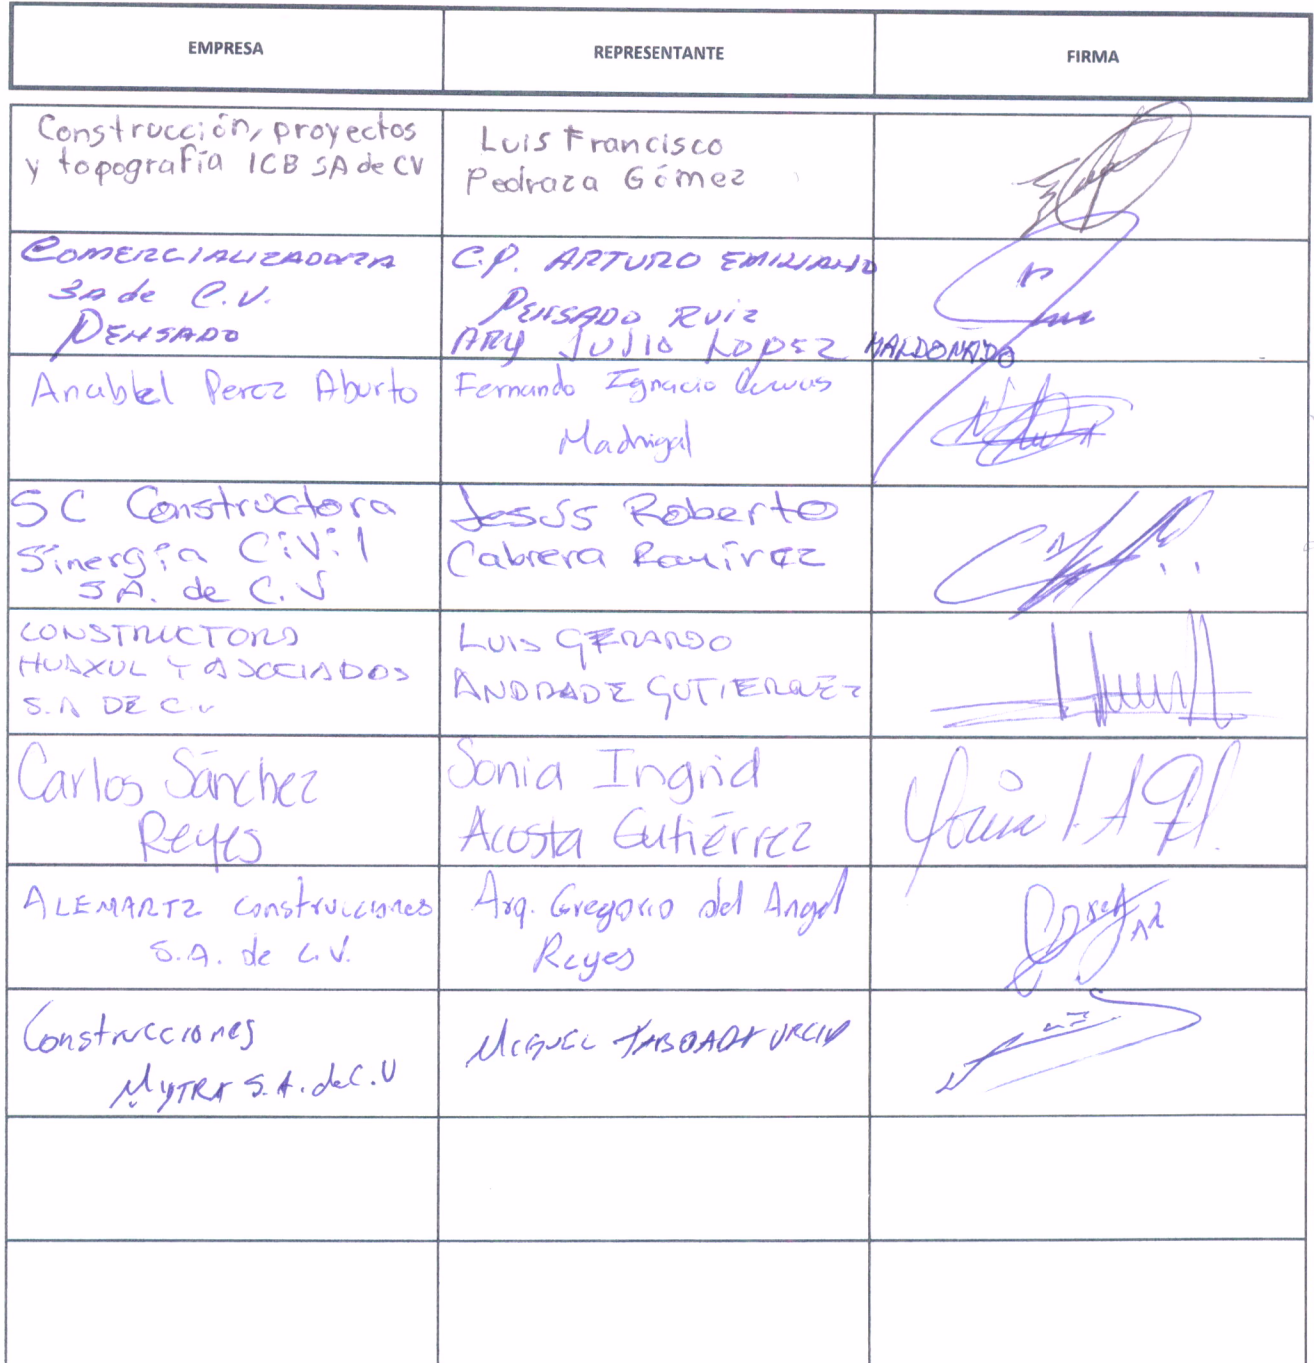 EMPRESA
REPRESENTANTE
FIRMA
Construcción, proyectos
y topografía ICB SA de CV
Luis Francisco
Pedraza Gómez
COMERCIALIZADORA
SA de C.V.
PENSADO
C.P. ARTURO EMILIANO
PENSADO RUIZ
ARY JULIO LOPEZ MALDONADO
Anabel Perez Aburto
Fernando Ignacio
Madrigal
SC Constructora
Sinergia Civil
S.A. de C.V
Jesús Roberto
Cabrera Ramírez
CONSTRUCTORA
HUAXUL Y ASOCIADOS
S.A DE C.V
LUIS GERARDO
ANDRADE GUTIERREZ
Carlos Sánchez
Reyes
Sonia Ingrid
Acosta Gutiérrez
ALEMARTZ construcciones
S.A. de C.V.
Arq. Gregorio del Angel
Reyes
Construcciones
MYTRA S.A. de C.V
MIGUEL TABOADA